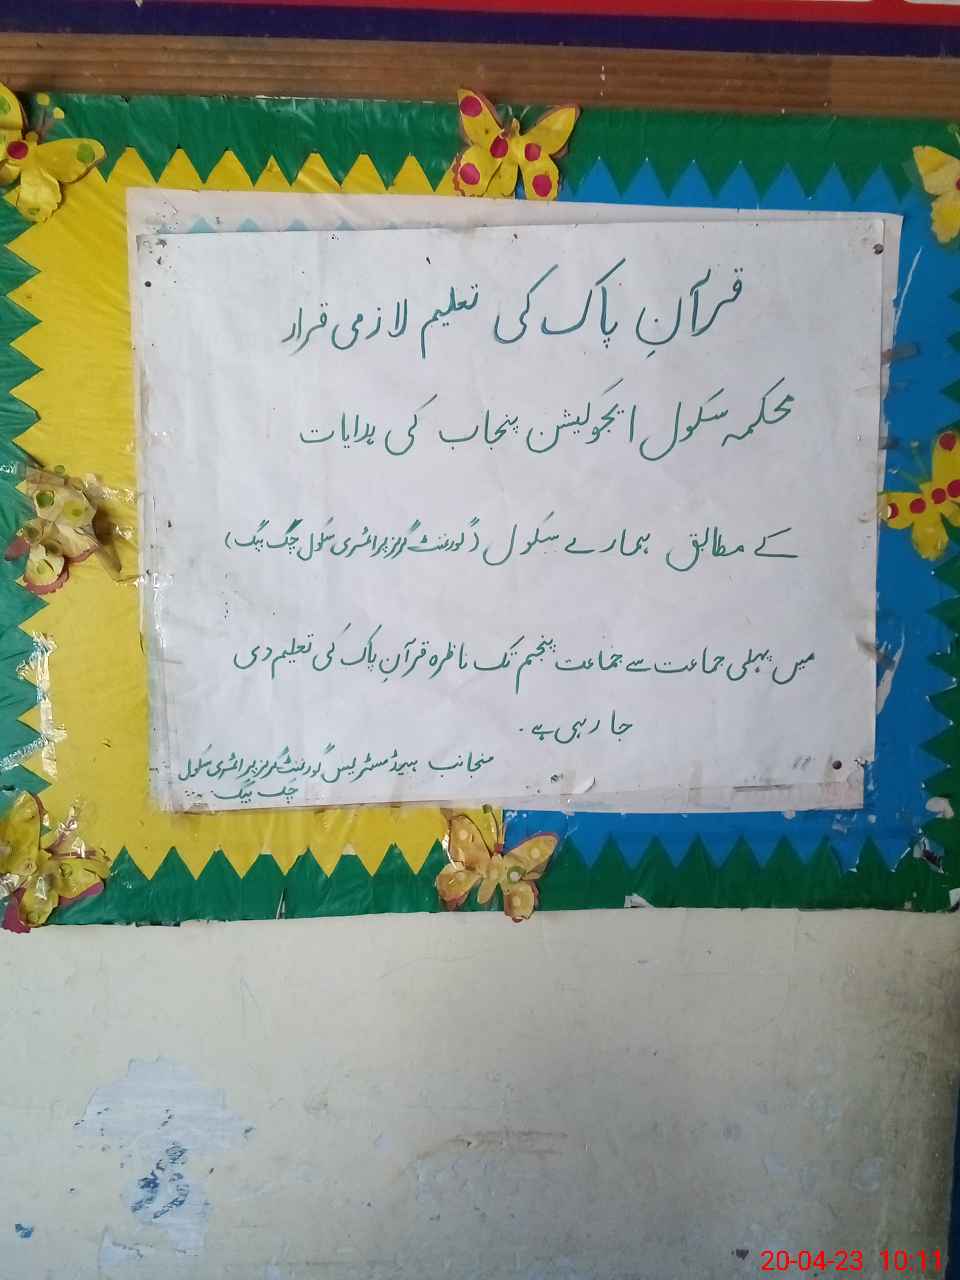 قرآنِ پاک کی تعلیم لازمی قرار
محکمہ سکول ایجوکیشن پنجاب کی ہدایات
کے مطابق ہمارے سکول (گورنمنٹ گرلز پرائمری سکول چک بیگ)
میں پہلی جماعت سے جماعت پنجم تک ناظرہ قرآنِ پاک کی تعلیم دی
جا رہی ہے۔
منجانب ہیڈ مسٹریس گورنمنٹ گرلز پرائمری سکول
چک بیگ
20-04-23 10:11